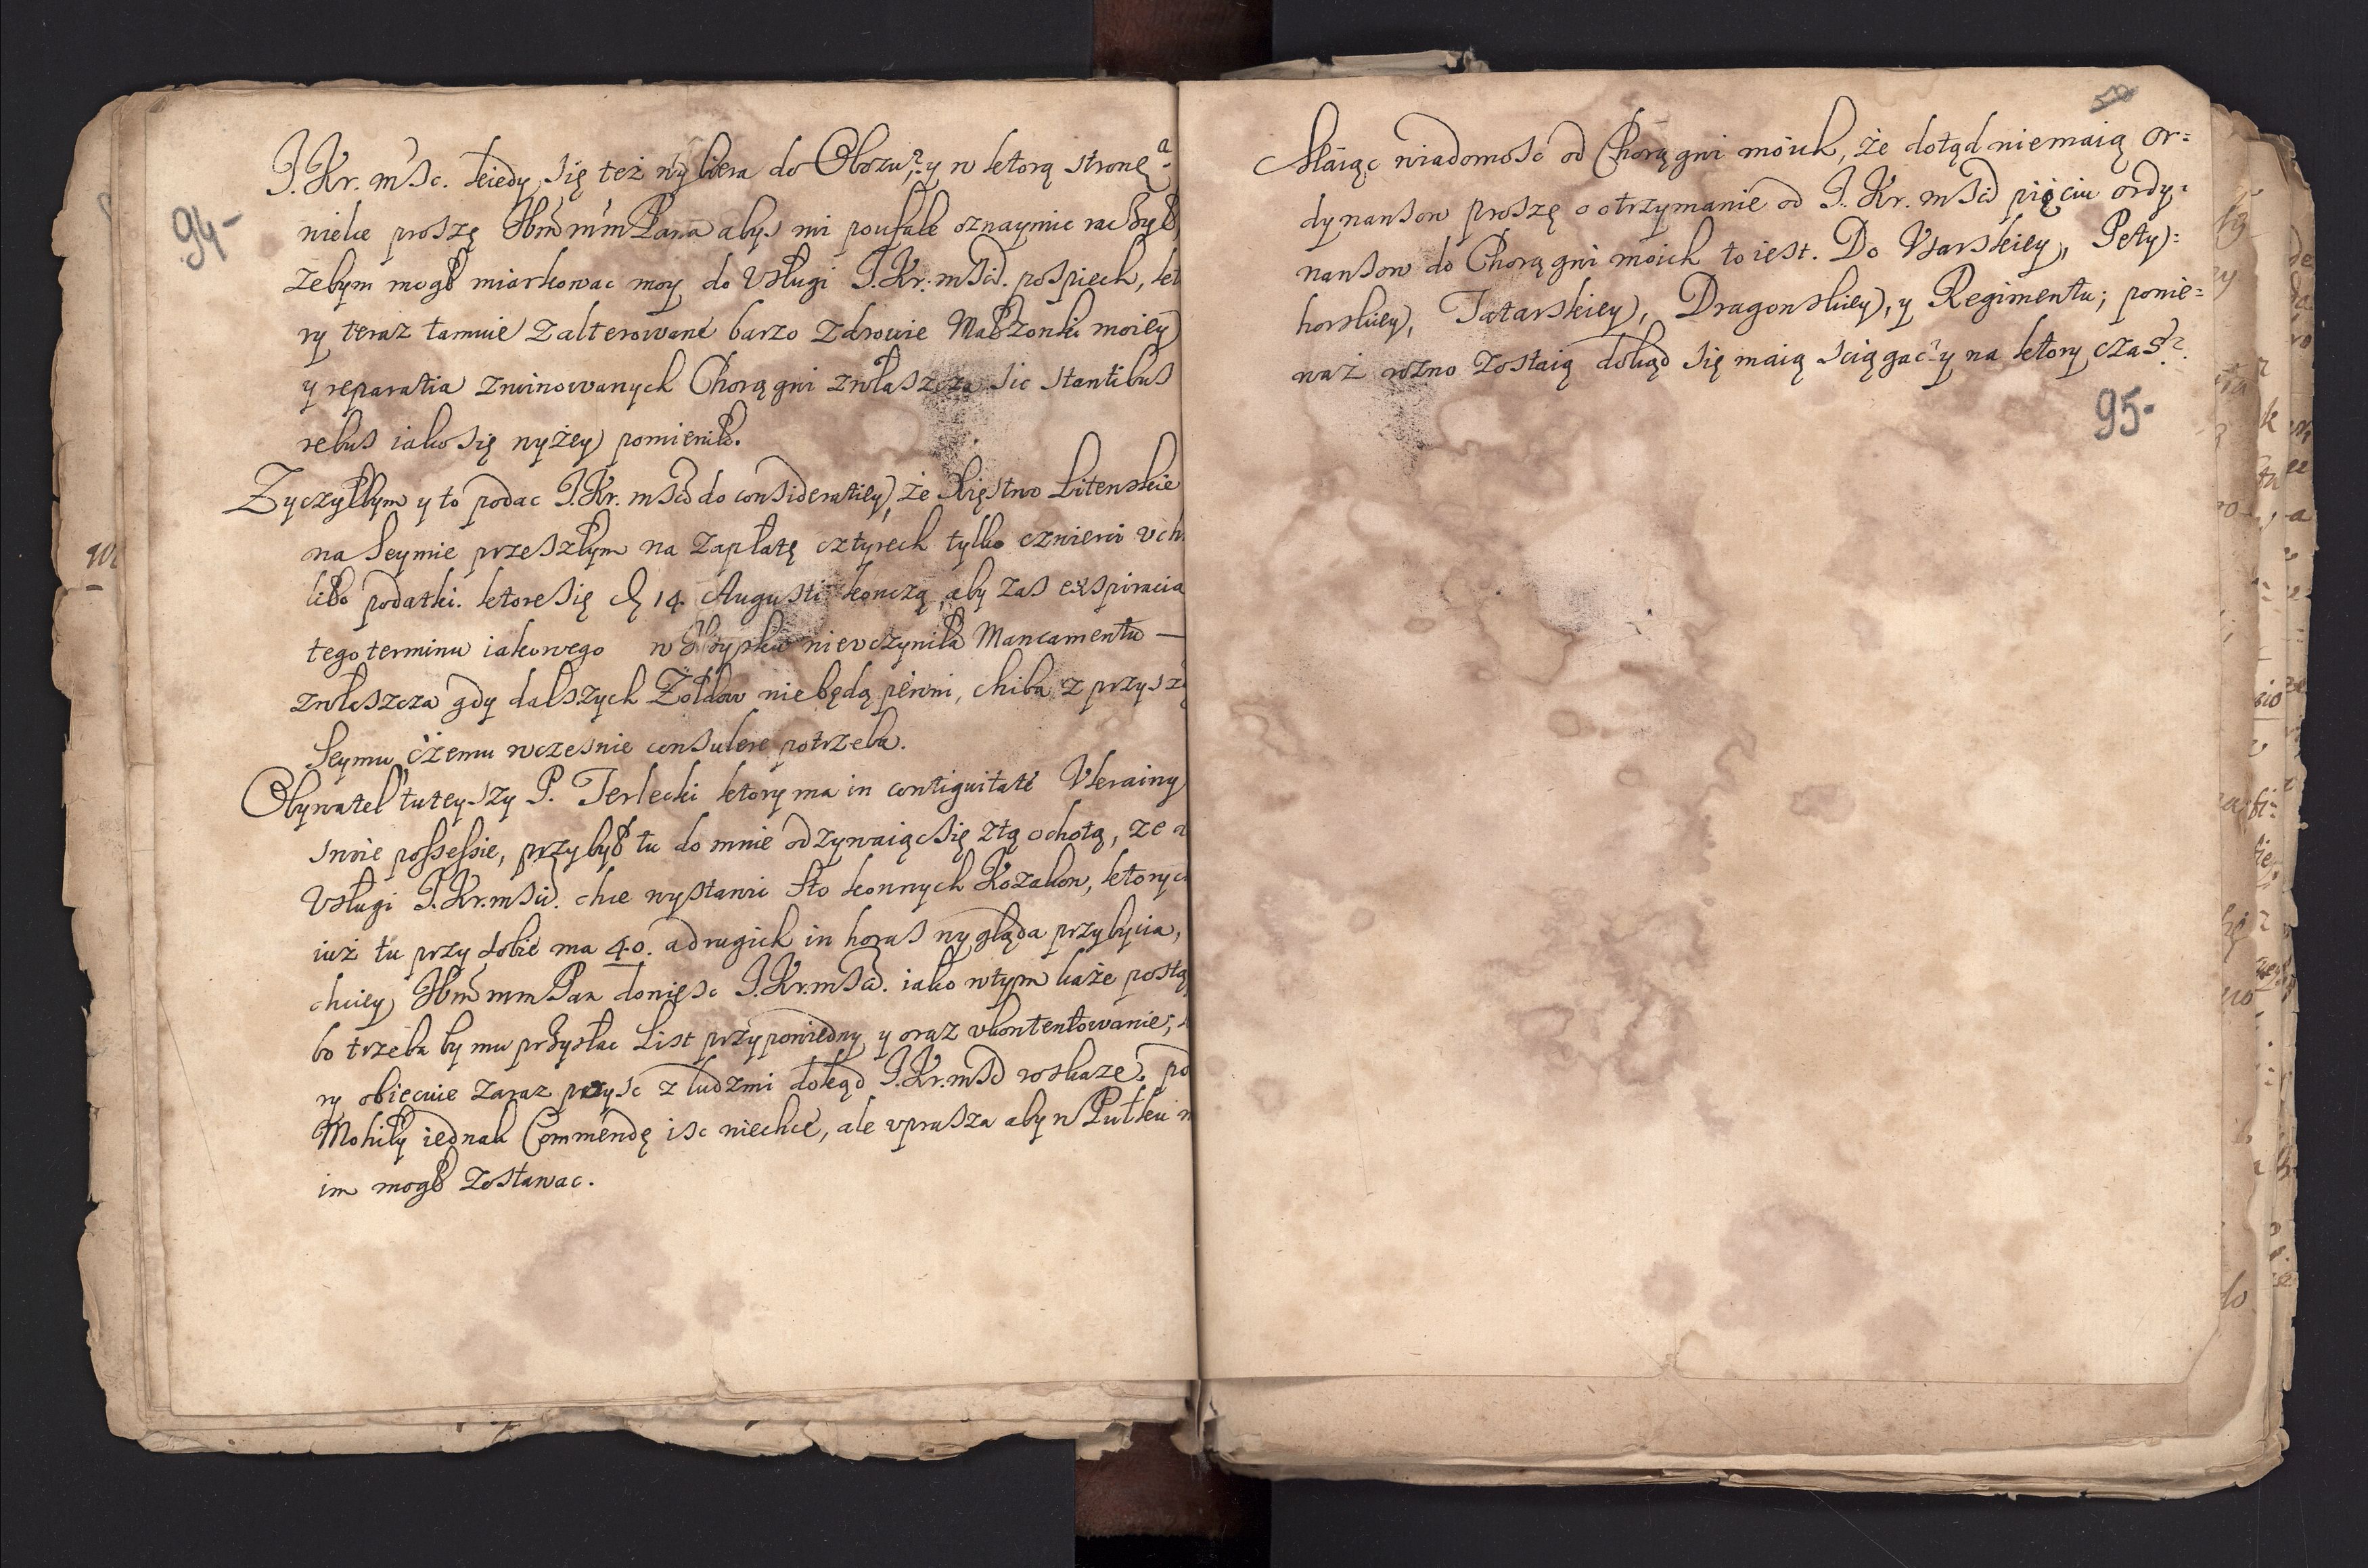 94-
J. Kr. msc. kiedy się też wybiera do Obozu? y w ktorą stronę?
wielce proszę Hbm̃ m̃m Pana abys mi poufale oznaymic raczył
zebym mogł miarkowac moy do Vsługi J. Kr. msci. pospiech, kt
ry teraz tamuie zalterowane barzo zdrowie Małżonki moiey
y reparatia zruinowanych Chorągni zwłaszcza sic stantibus
rebus iako się wyżey pomieniło.
Zyczyłbym y to podac J. Kr. msci do consideratiey, że Xięstwo Litewskie
na Seymie przeszłym na zapłatę cztyrech tylko czwierci vch
liło podatki. ktore się 14 Augusti konczą, aby zas exspiracia
tego terminu iakowego w nieuczyniła Mancamentu —
zwłaszcza gdy dalszych Zołdow nie będą pewni, chiba z przysz
Seymu czemu wczesnie consulere potrzeba.
Obywatel tuteyszy P. Terlecki ktory ma in contiguitate Vkrainy
swoie possessie, przybył tu do mnie odzywaiąc się z tą ochotą, ze
Vsługi J. Kr. msci. chce wystawic Sto konnych Kozakow, ktorych
iuż tu przy sobie ma 40. a drugich in horas wygląda przybycia,
chciey Hbm̃ mm Pan doniesc J. Kr. msci. iako w tym każe postą
bo trzeba by mu przysłac List przypowiedny y oraz vkontentowanie,
ry obiecuie zaraz przysc z ludzmi dokąd J. Kr. msc roskaze. pod
Mohiły iednak Commendę isc niechce, ale vprasza aby w Pułku m
im mogł zostawac.
50
Maiąc wiadomosc od Chorągni moich, że dotąd niemaią or=
dynansow proszę o otrzymanie od J. Kr. msci pięciu ordy=
nansow do Chorągni moich to iest. Do Vsarskiey, Pety=
horskiey, Tatarskiey, Dragonskiey, y Regimentu; ponie=
waż rozno zostaią dokąd się maią sciągac? y na ktory czas?
95-